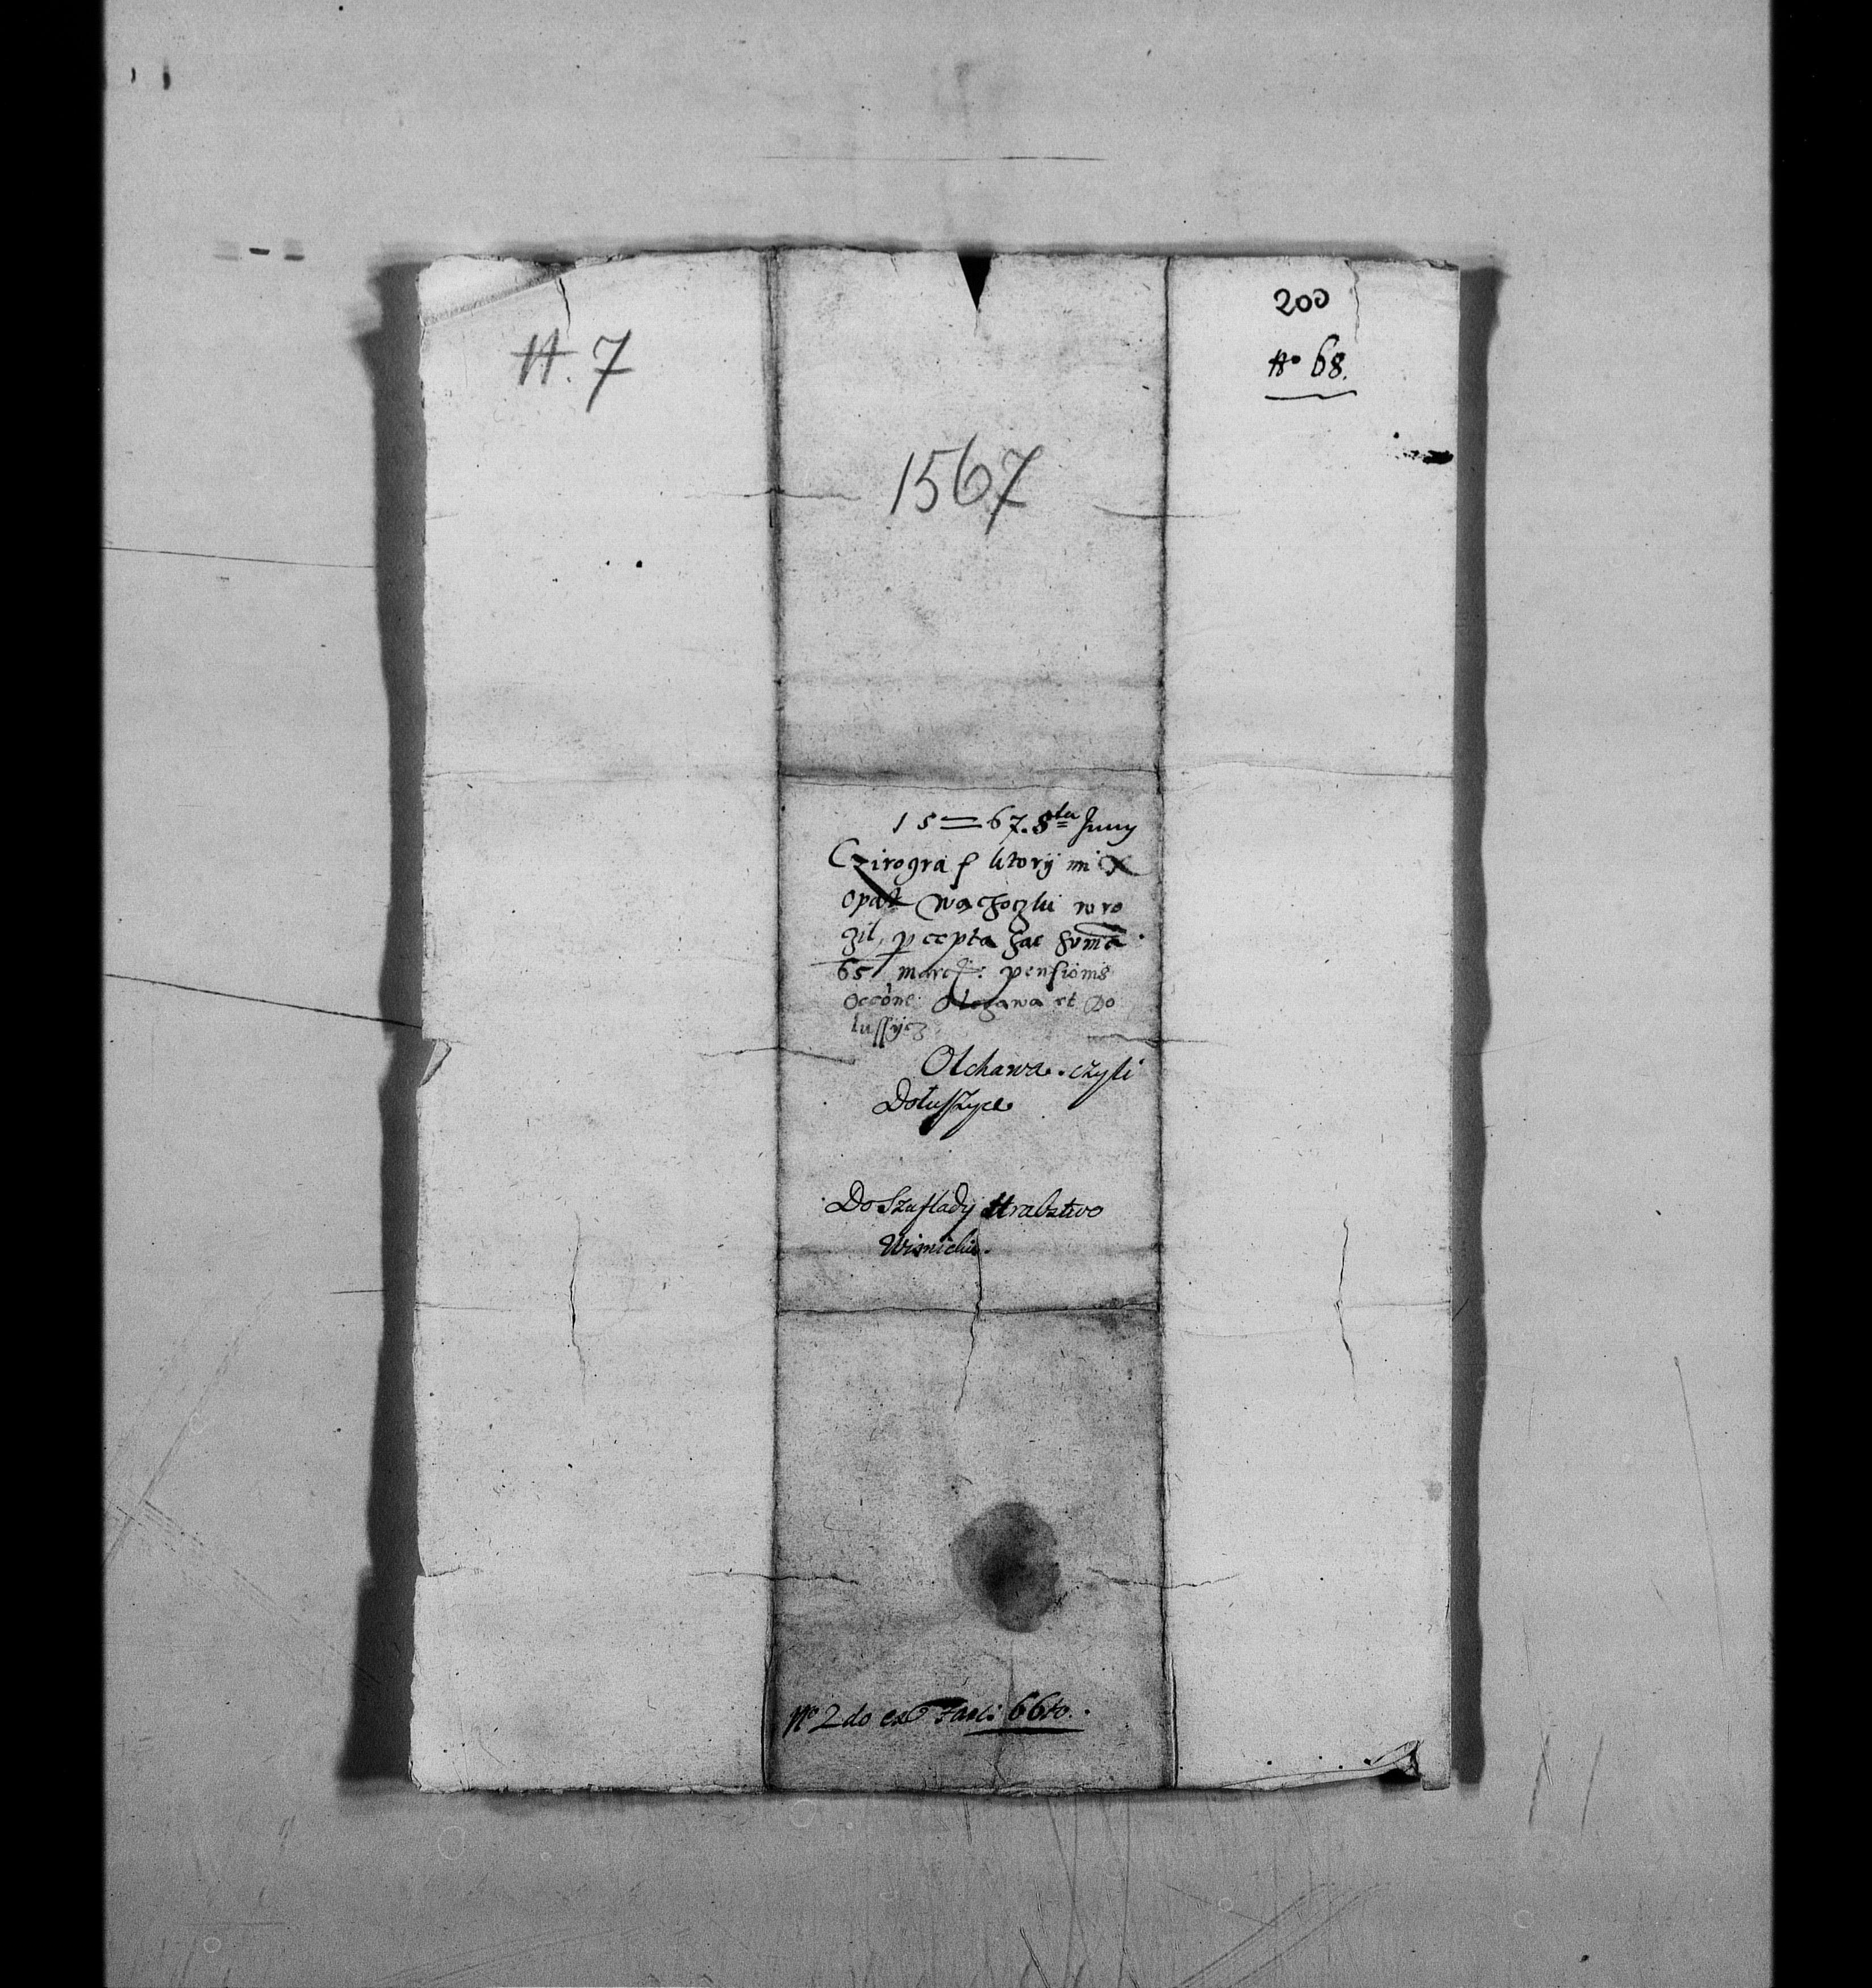 H. 7
200
No 68.
1567
15=67. 8ta Juny
Czirograf ktory mi X
opat Wachoczki wro
zil, p cepta hac suma
65 marc: pensionis
occone Olchawa et Do
lussycz
Olchawa czyli
Dołuszyce
Do Szuflady Hrabstwo
Wisnickie.
No 2do ex Fasc: 66to.